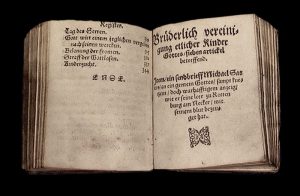 Register.
Tag des Herren.
Gott wirt einem jeglichen vergelten
nach seinen wercken.
Belonung der frommen.
Straff der Gottlosen.
Kinderzucht.
E N D E.
Brüderlich vereini-
gung etlicher Kinder
Gottes/ sieben artickel
betreffend.
Item/ ein sendbrieff Michael Sat-
lers/ an ein gemein Gottes/ sampt kur-
tzem/ doch warhafftigem anzeig/
wie er seine leer zu Rotten-
burg am Necker/ mit
seinem blut bezeu-
get hat.